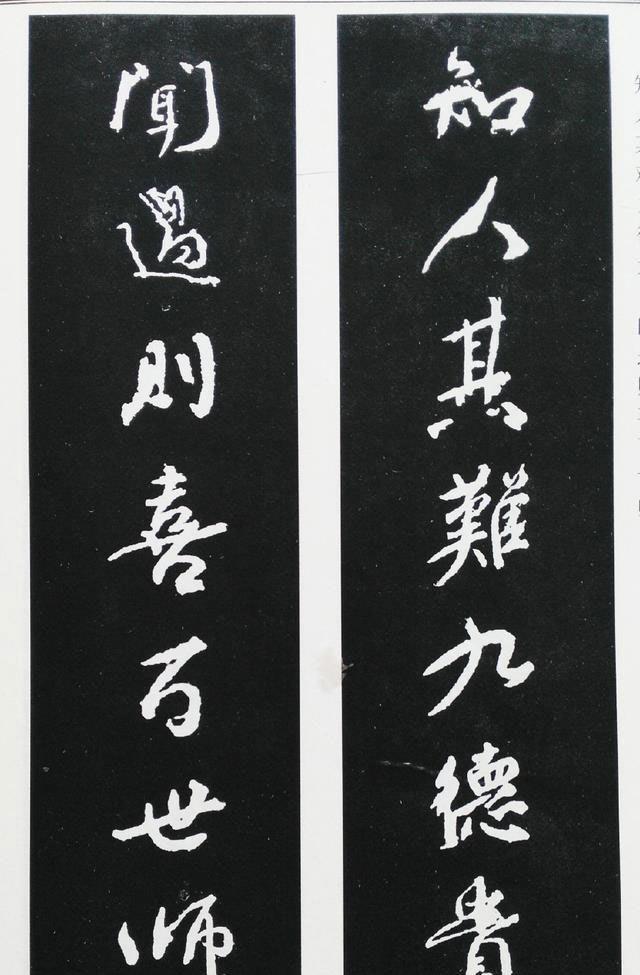 知人其難九德貴
聞過則喜百世師